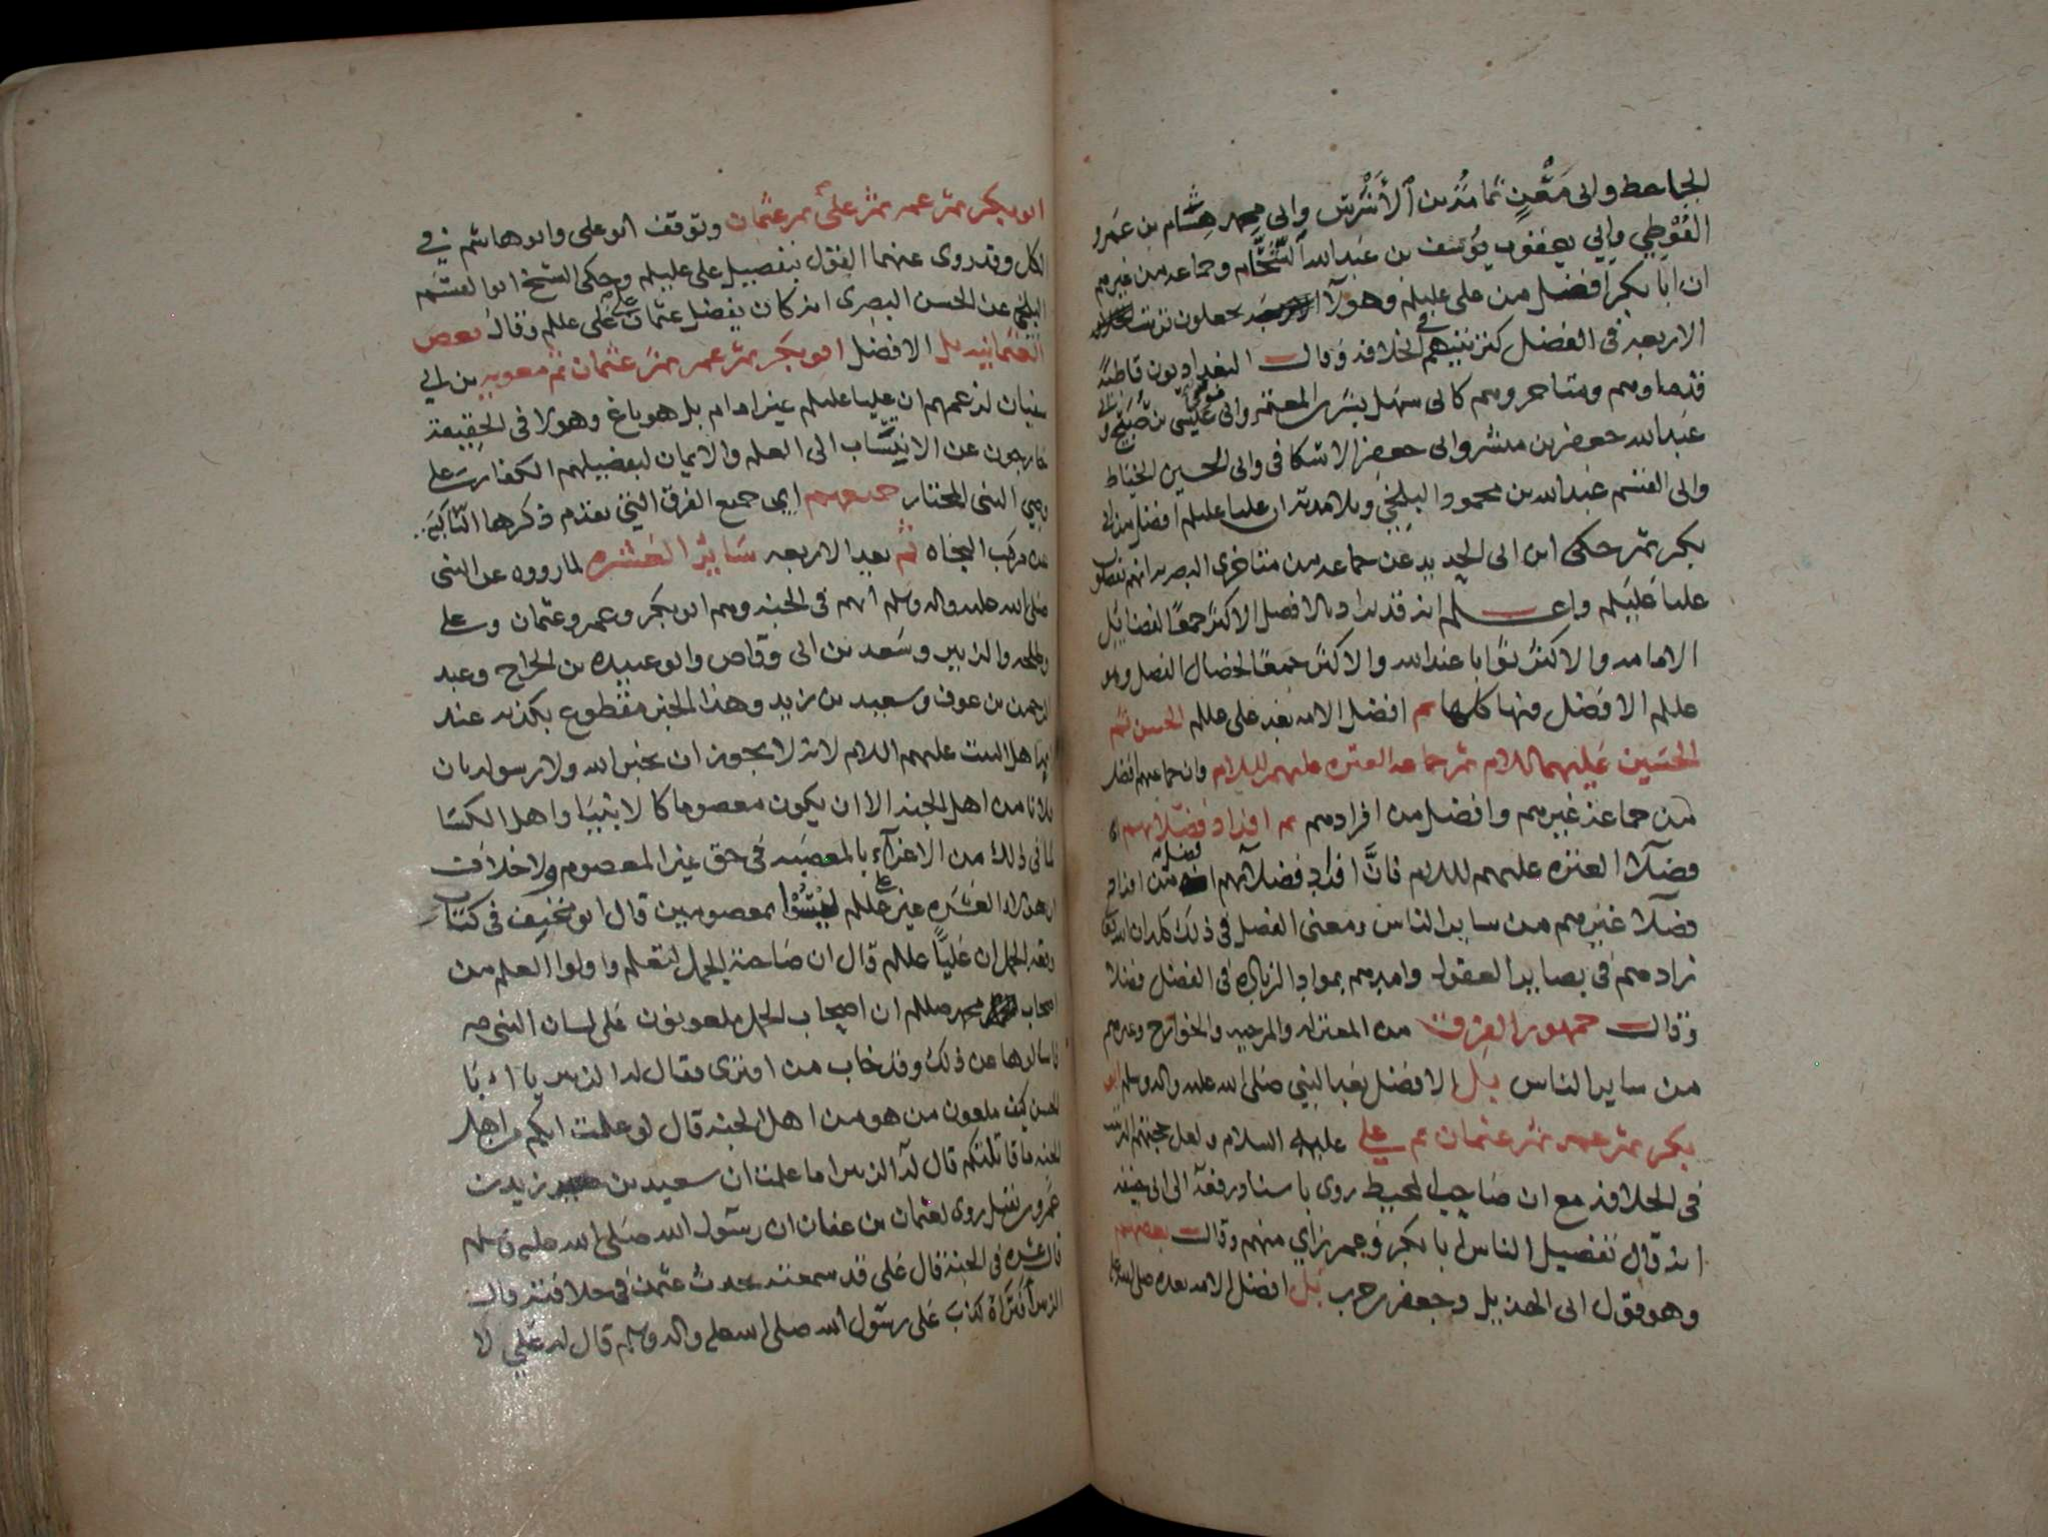 الجاحظ وابي مَعْنٍ ثمامة بن الأشرس وابي محمد هشام بن عمرو
الفُوَطِي وابي يعقوب يوسف بن عبدالله الشَّحَّام وجماعه من غيرهم
ان ابا بكر افضل من علي عليلم وهولآ يجعلون ترتيب
الاربعه في الفضل كترتيبهم في الخلافه وقالت البغداديون قاطبةً
قدماوهم ومتاخروهم كابي سهل بشر بن المعتمر وابي موسى عيسى بن صُبَيْح وابي
عبدالله جعفر بن مبشر وابي جعفر الاسكافي وابي الحسين الخياط
وابي القسم عبدالله بن محمود البلخي وتلامذته ان عليا عليلم افضل من ابي
بكر ثم حكى ابن ابي الحديد عن جماعه من متاخري البصريه انهم يفضلون
عليا عليلم واعلم انه قد يراد بالافضل الاكثر جمعًا لفضايل
الامامه والاكثر ثوابا عند الله والاكثر جمعًا لخصال الفضل وهو
عليلم الافضل منها كلها ثم افضل الامه بعد علي عليلم الحسن ثم
الحسين عليهما السلام ثم جماعه العتره عليهم السلام وان جماعتهم افضل
من جماعة غيرهم وافضل من افرادهم ثم افراد فضلائهم اي
فضلآ العتره عليهم السلام فانَّ افراد فضلآئهم افضل من افراد
فضلآ غيرهم من ساير الناس ومعنى الفضل في ذلك كله ان الله تعالى
زادهم في بصاير العقول وامدهم بمواد الزياده في الفضل فضلا
وقالت جمهور الفرق من المعتزله والمرجيه والخوارج وغيرهم
من ساير الناس بل الافضل بعد النبي صلى الله عليه واله وسلم ابو
بكر ثم عمر ثم عثمان ثم علي عليه السلام ولعل حجتهم الترتيب
في الخلافه مع ان صاحب المحيط روى باسناد رفعه الى ابي حنيفه
انه قال تفضيل الناس لابا بكر وعمر راي منهم وقالت بعضهم
وهو قول ابي الهذيل وجعفر بن حرب بل افضل الامه بعده صلى الله عليه
ابو بكر ثم عمر ثم علي ثم عثمان وتوقف ابو علي وابو هاشم في
الكل وقد روي عنهما القول بتفضيل علي عليلم وحكى الشيخ ابو القسم
البلخي عن الحسن البصري انه كان يفضل عثمان على علي عليلم وقال بعض
العثمانيه بل الافضل ابو بكر ثم عمر ثم عثمان ثم معويه بن ابي
سفيان لزعمهم ان عليا عليلم غير امام بل هو باغ وهولا في الحقيقة
خارجون عن الانتساب الى العلم والايمان لتفضيلهم الكفار على
وصي النبي المختار جميعهم اي جميع الفرق التي تقدم ذكرها الناكبة
عن مركب النجاه ثم بعد الاربعه ساير العشره لما رووه عن النبي
صلى الله عليه واله وسلم انهم في الجنه وهم ابو بكر وعمر وعثمان وعلي
وطلحه والزبير وسعد بن ابي وقاص وابو عبيده بن الجراح وعبد
الرحمن بن عوف وسعيد بن زيد وهذا الخبر مقطوع بكذبه عند
ايمة اهل البيت عليهم السلام لانه لا يجوز ان يخبر الله ولا رسوله بان
فلانا من اهل الجنه الا ان يكون معصوما كالانبيا واهل الكسا
لما في ذلك من الاغرآء بالمعصيه في حق غير المعصوم ولا خلاف
ان هولآ العشره غير علي عليلم ليسوا بمعصومين قال ابو مخنف في كتاب
وقعه الجمل ان عليًّا عليلم قال ان صاحبة الجمل لتعلم واولوا العلم من
اصحاب محمد صللم ان اصحاب الجمل ملعونون على لسان النبي صه
فاسالوها عن ذلك وقد خاب من افترى فقال له الزبير يا ابا
الحسن كيف ملعون من هو من اهل الجنه قال لو علمت انكم من اهل
الجنه ما قاتلتكم قال له الزبير اما علمت ان سعيد بن زيد بن
عمرو بن نفيل روى لعثمان بن عفان ان رسول الله صلى الله عليه وسلم
قال عشره في الجنه قال علي قد سمعته يحدث عثمن في خلافته قال
الزبير افتراه كذب على رسول الله صلى الله عليه واله وسلم قال له علي لا